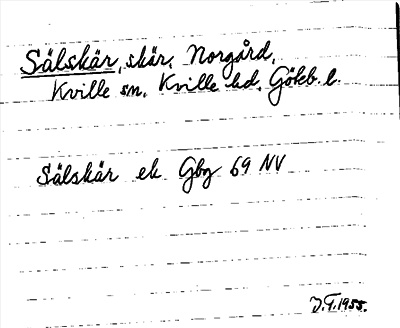 Sälskär, skär, Norgård,
Kville sn. Kville hd. Göteb. l.
Sälskär ek Gbg 69 NV
D.F. 1955.